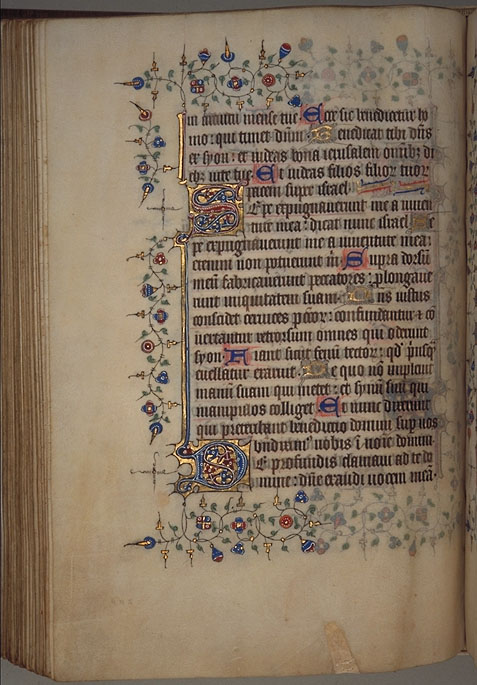 in circuitu mense tue. Ecce sic benedicetur ho
mo: qui timet dn̄m. Benedicat tibi dn̄s
ex syon: et uideas bona ierusalem omnibꝫ di
ebꝫ uite tue. Et uideas filios filioꝝ tuoꝝ
pacem super israel.
Sepe expugnauerunt me a iuuen
tute mea: dicat nunc israel. Se
pe expugnauerunt me a iuuentute mea:
etenim non potuerunt m̄. Supra dorsū
meū fabricauerunt peccatores: plongaue
runt iniquitatem suam. Dn̄s iustus
concidet ceruices pc̄coꝝ: confundantur et cō
uertantur retrorsum omnes qui oderunt
syon. Fiant sicut fenū tectoꝝ: qd̄ priusq̄
euellatur exaruit. De quo nō impleuit
manum suam qui metet: et sinū suū qui
manipulos colliget. Et non dixerunt
qui preteribant benedictio domini sup uos
bn̄dixim᷒ uobis ī noīe domini.
De profundis clamaui ad te do
mine: dn̄e exaudi uocem meā.